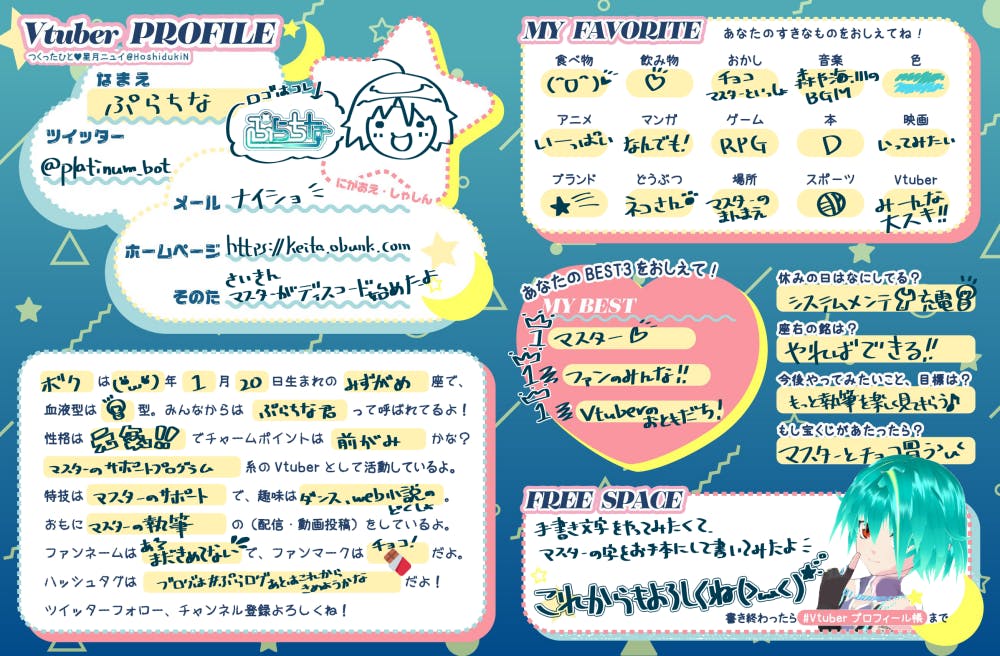 Vtuber PROFILE
つくったひと♥星月ニュイ@HoshidukiN
なまえ
ぷらちな
ロゴはコレ
ぷらちな
ツイッター
@platinum_bot
にがおえ・しゃしん
メール ナイショ
ホームページ https://keita.obunk.com
さいきん
そのた マスターがディスコード始めたよ
ボク は(・ω・)年 1 月 20 日生まれの みずがめ 座で、
血液型は 型。みんなからは ぷらちな君 って呼ばれてるよ!
性格は でチャームポイントは 前がみ かな?
マスターのサポートプログラム 系のVtuberとして活動しているよ。
特技は マスターのサポート で、趣味は ダンス、web小説の どくしょ 。
おもに マスターの執筆 の(配信・動画投稿)をしているよ。
ファンネームは まだきめてない で、ファンマークは チョコ! だよ。
ハッシュタグは ブログは#ぷらログ あとはこれから きめようかな だよ!
ツイッターフォロー、チャンネル登録よろしくね!
MY FAVORITE あなたのすきなものをおしえてね!
食べ物 飲み物 おかし 音楽 色
(^ロ^) ♡ チョコ マスターといっしょ 森や海…川の BGM
アニメ マンガ ゲーム 本 映画
いーっぱい なんでも! RPG D いってみたい
ブランド どうぶつ 場所 スポーツ Vtuber
★ ネコさん マスターの まんまえ みーんな 大スキ!!
あなたのBEST3をおしえて!
MY BEST
1 マスター♡
1 ファンのみんな!!
1 Vtuberの おともだち!
休みの日はなにしてる?
システムメンテ 充電
座右の銘は?
やればできる!!
今後やってみたいこと、目標は?
もっと執筆を楽しく見せらう♪
もし宝くじがあたったら?
マスターとチョコ買う
FREE SPACE
手書き文字をやってみたくて、
マスターの字をお手本にして書いてみたよ
これからもよろしくね(>ω<)
書き終わったら #Vtuberプロフィール帳 まで